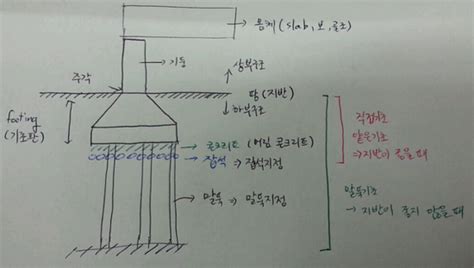 몸체 (slab, 보, 골조)
기둥
주각
상부구조
땅 (지반)
하부구조
footing
(기초판)
콘크리트 (버림 콘크리트)
잡석 ⇒ 잡석지정
말뚝 ⇒ 말뚝지정
직접기초
얕은기초
⇒ 지반이 좋을 때
말뚝기초
→ 지반이 좋지 않을 때